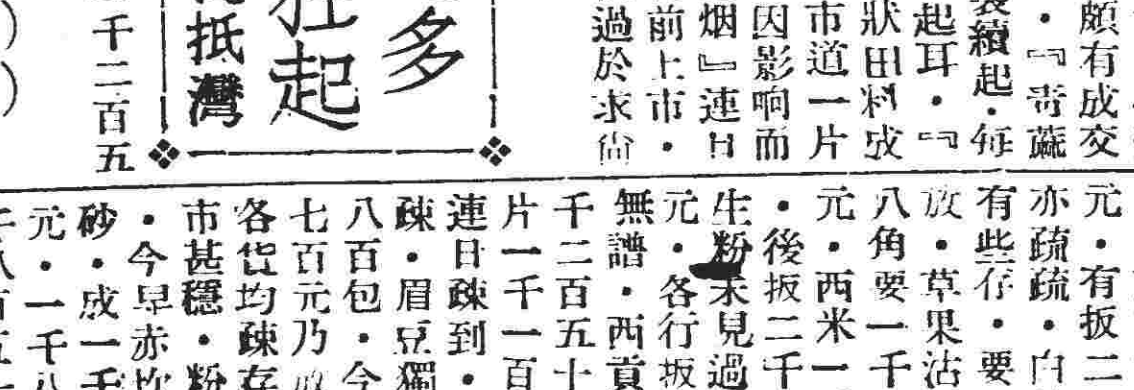 頗有成交
・『青蔴
續起・每
起耳・『
狀田料成
市道一片
因影响而
烟』連日
前上市・
過於求尙
多
狂起
抵灣
千二百五
元・有扳二
亦疏疏・白
有些存・要
放・草果沽
八角要一千
元・西米一
・後扳二千
生粉未見過
元・各行扳
無譜・西貢
千二百五十
片一千一百
連日疎到・
疎・眉豆獨
八百包・今
七百元乃
各貨均疎存
市甚穩・粉
・今早赤
砂・成一千
元・一千八